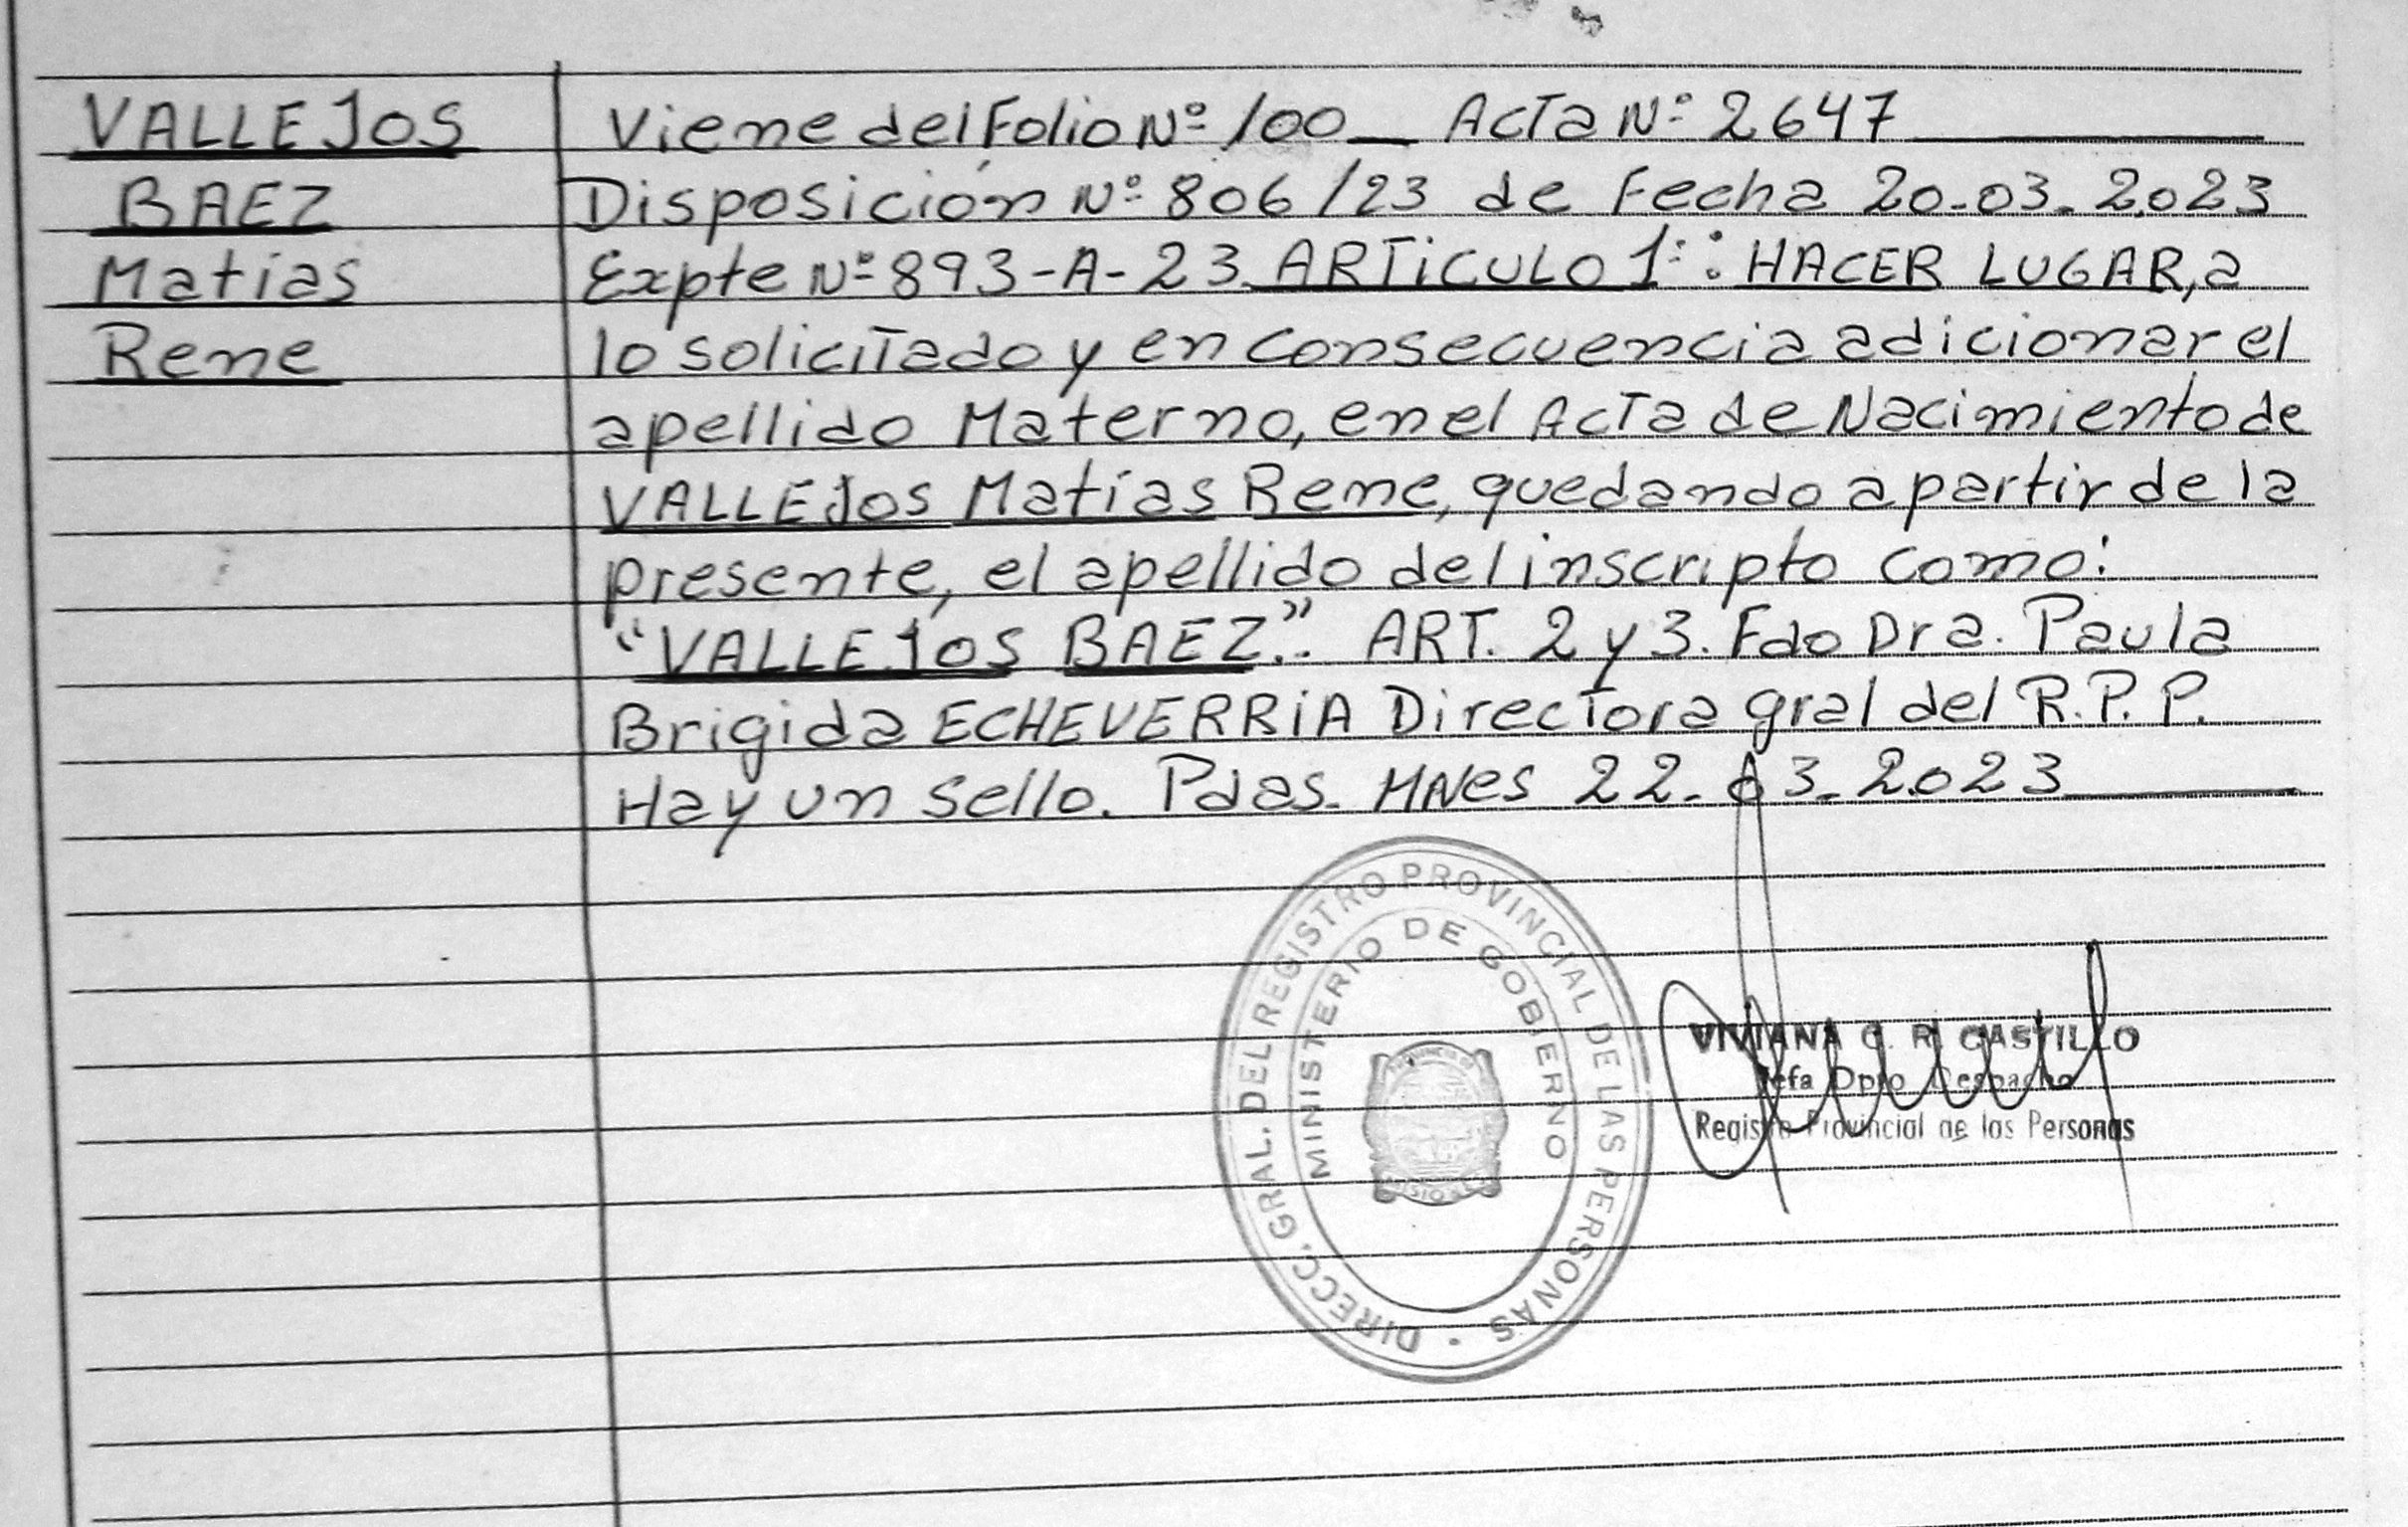 VALLEJOS
BAEZ
Matias
Rene
Viene del Folio Nº 100 Acta Nº 2647
Disposición Nº 806/23 de Fecha 20-03-2023
Expte Nº 893-A-23 ARTiCULO 1º: HACER LUGAR, a
lo solicitado y en consecuencia adicionar el
apellido Materno, en el Acta de Nacimiento de
VALLEJOS Matías Rene, quedando a partir de la
presente, el apellido del inscripto como:
“VALLEJOS BAEZ.”. ART. 2 y 3. Fdo Dra. Paula
Brigida ECHEVERRiA Directora gral del R.P.P.
Hay un sello. Pdas. MNes 22-03-2023
DIRECC. GRAL. DEL REGISTRO PROVINCIAL DE LAS PERSONAS -
MINISTERIO DE GOBIERNO
VIVIANA C. R. CASTILLO
Jefa Dpto Despacho
Registro Provincial de las Personas